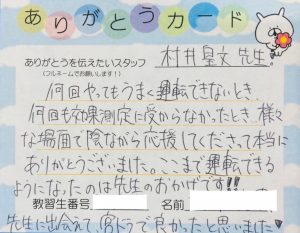 ありがとうカード
ありがとうを伝えたいスタッフ
(フルネームでお願いします!)
村井 皇文 先生。
何回やってもうまく運転できないとき、
何回も効果測定に受からなかったとき、様々
な場面で陰ながら応援してくださって本当に
ありがとうございました。ここまで運転できる
ようになったのは先生のおかげです!!
教習生番号 名前
先生に出会えて、宮ドラで良かったと思いました♥